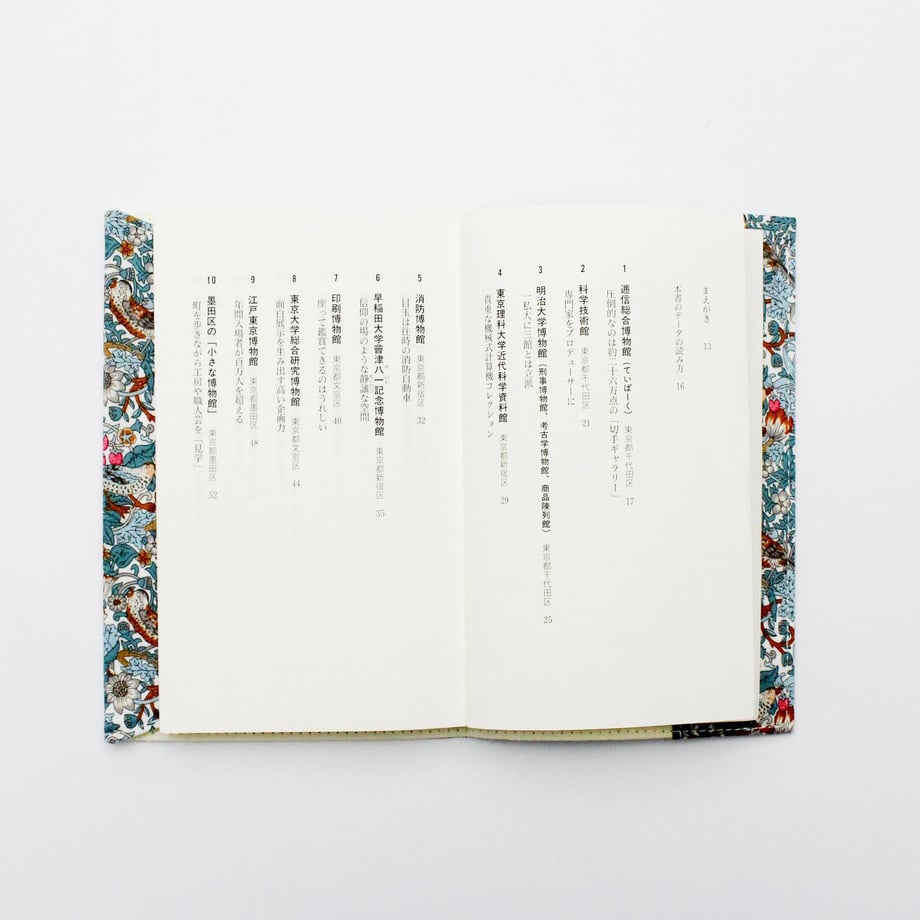 まえがき 13
本書のデータの読み方 16
1 逓信総合博物館（ていぱーく） 東京都千代田区 17
圧倒的なのは約三十六万点の「切手ギャラリー」
2 科学技術館 東京都千代田区 21
専門家をプロデューサーに
3 明治大学博物館（刑事博物館、考古学博物館、商品陳列館） 東京都千代田区 25
一私大に三館とは立派
4 東京理科大学近代科学資料館 東京都新宿区 29
貴重な機械式計算機コレクション
5 消防博物館 東京都新宿区 32
目玉は往時の消防自動車
6 早稲田大学會津八一記念博物館 東京都新宿区 35
信仰の場のような静謐な空間
7 印刷博物館 東京都文京区 40
座って鑑賞できるのはうれしい
8 東京大学総合研究博物館 東京都文京区 44
面白展示を生み出す高い企画力
9 江戸東京博物館 東京都墨田区 48
年間入場者が百万人を超える
10 墨田区の「小さな博物館」 東京都墨田区 52
町を歩きながら工房や職人芸を「見学」